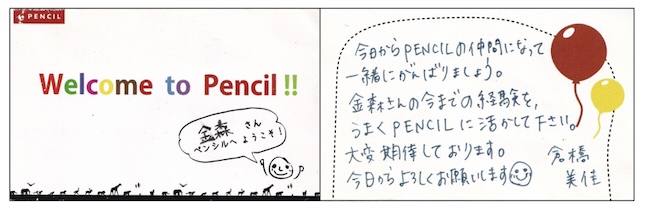 PENCIL
Welcome to Pencil!!
金森 さん
ペンシルへ ようこそ!
今日からPENCILの仲間になって
一緒にがんばりましょう。
金森さんの今までの経験を、
うまくPENCILに活かして下さい。
大変期待しております。
今日からよろしくお願いします
倉橋
美佳